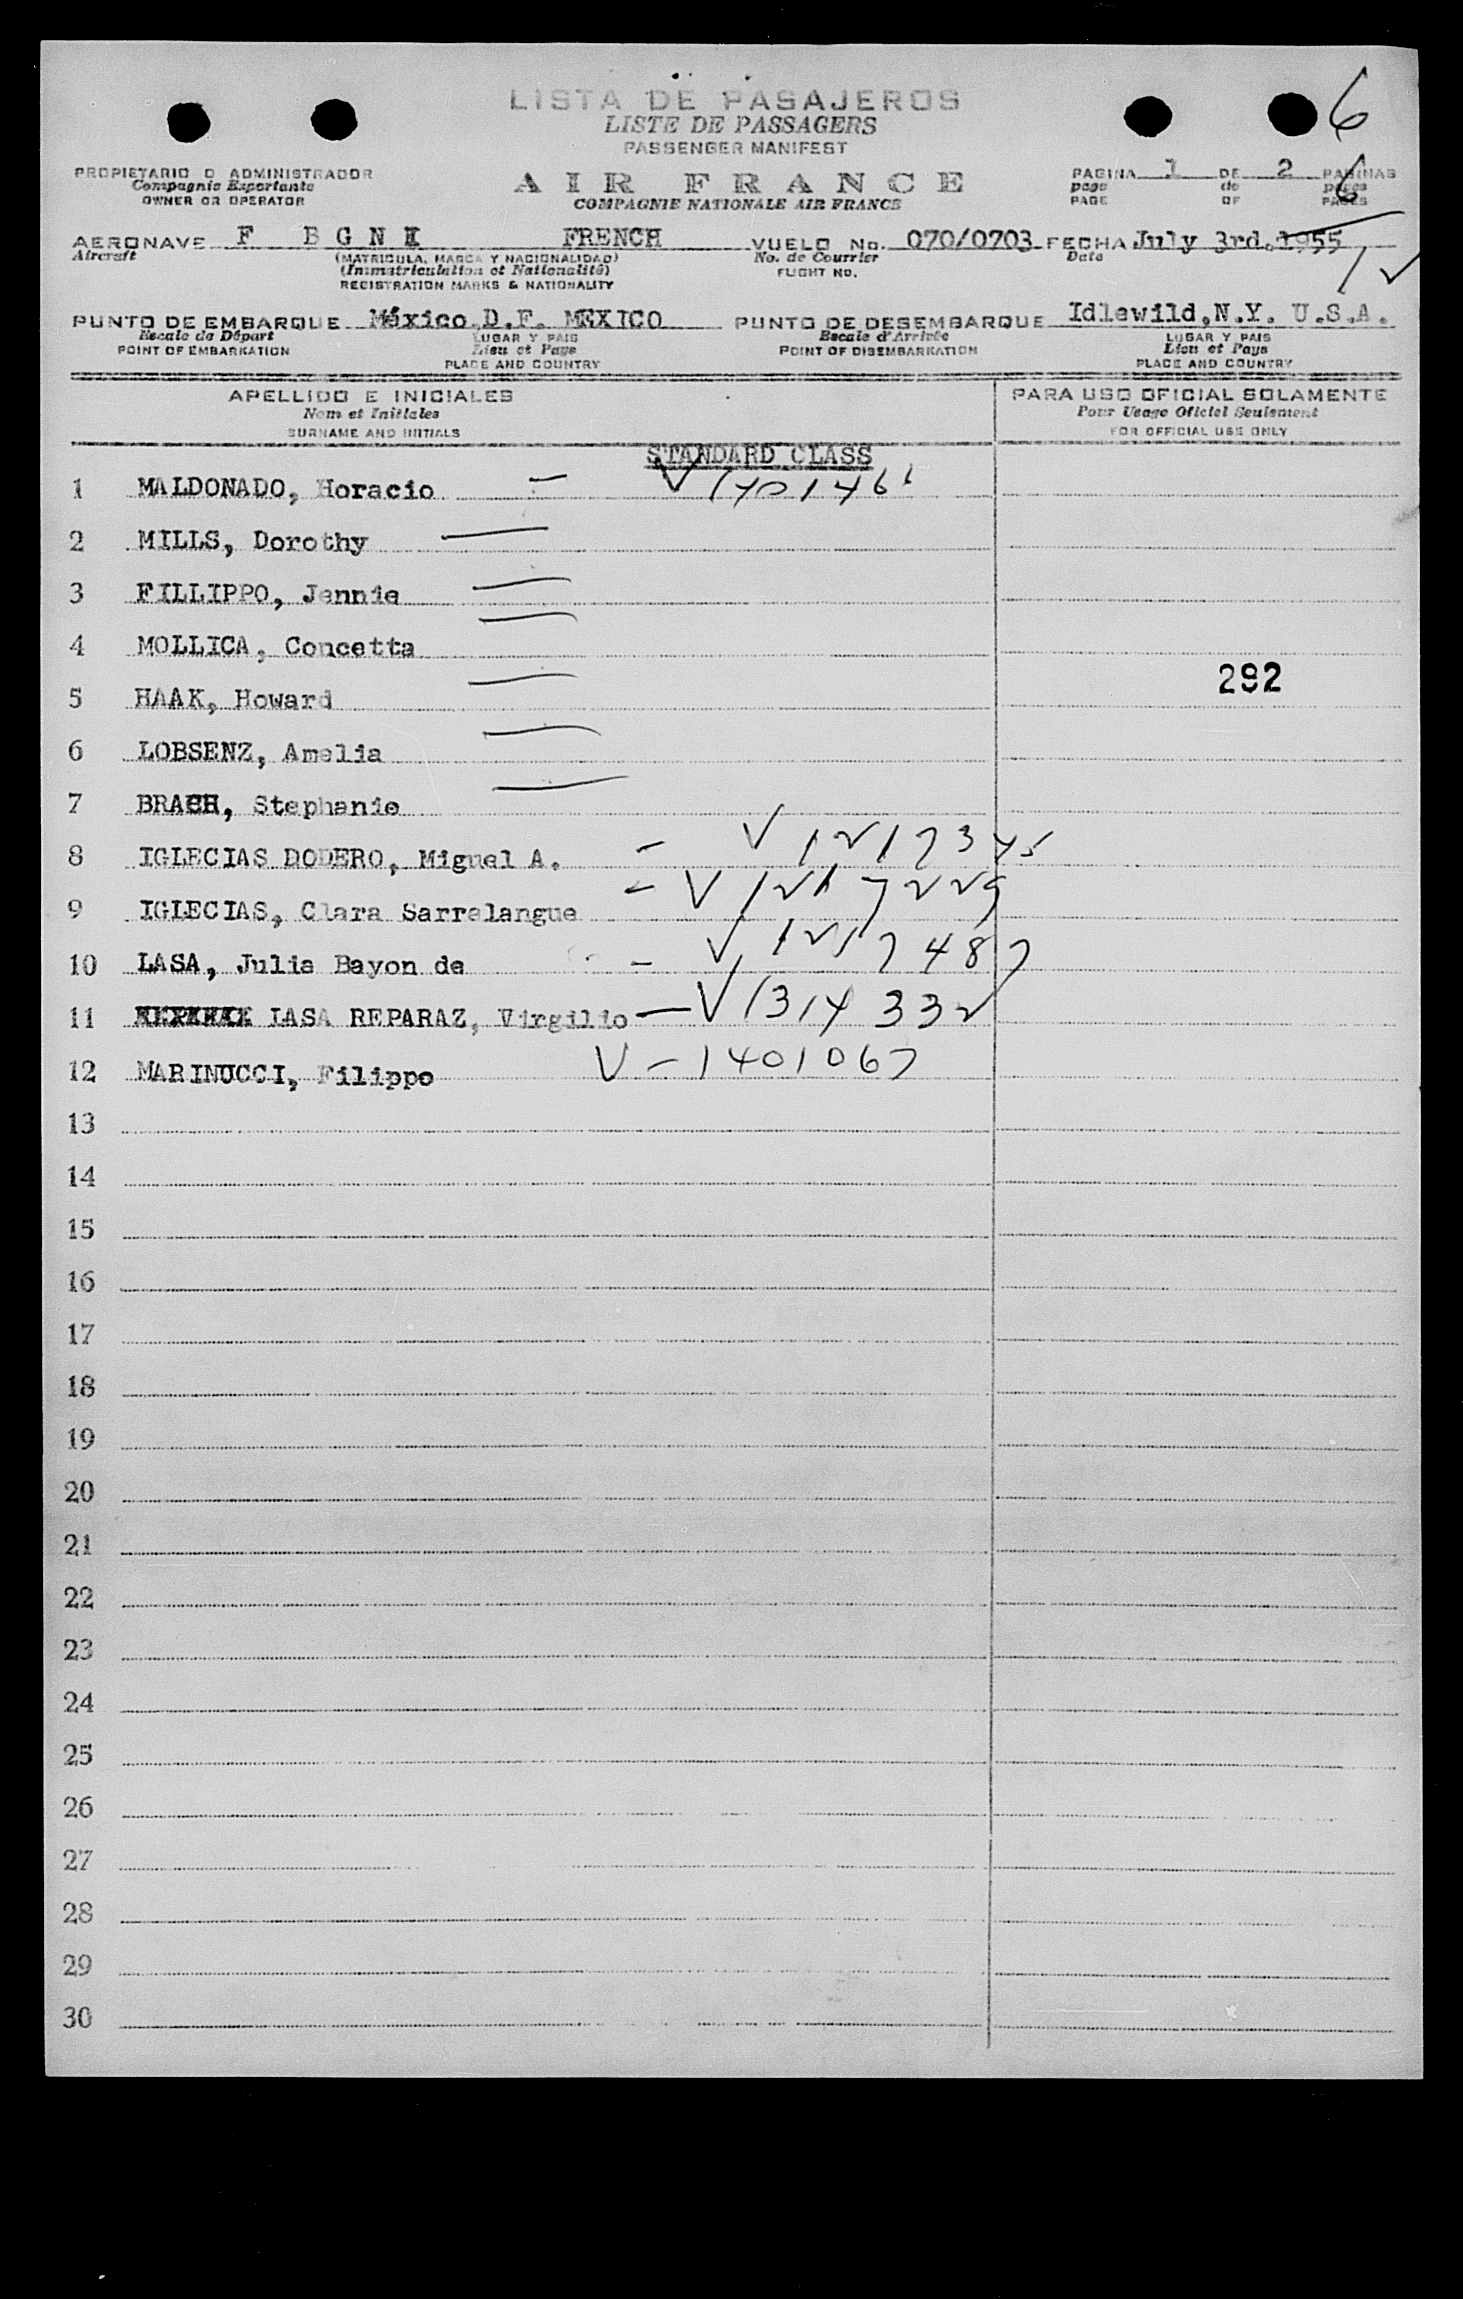 LISTA DE PASAJEROS
LISTE DE PASSAGERS
PASSENGER MANIFEST
6
PROPIETARIO O ADMINISTRADOR
Compagnie Exportante
OWNER OR OPERATOR
AIR FRANCE
COMPAGNIE NATIONALE AIR FRANCE
PAGINA 1 DE 2 PAGINAS
page de pages
PAGE OF PAGES
6
AERONAVE F B G N I FRENCH VUELO No. 070/0703 FECHA July 3rd.1955
Aircraft (MATRICULA, MARCA Y NACIONALIDAD) No. de Courrier Date
(Inmatriculation et Nationalité) FLIGHT NO.
REGISTRATION MARKS & NATIONALITY
12
PUNTO DE EMBARQUE México.D.F. MEXICO PUNTO DE DESEMBARQUE Idlewild,N.Y. U.S.A.
Escale de Départ LUGAR Y PAIS Escale d'Arrivée LUGAR Y PAIS
POINT OF EMBARKATION Lieu et Pays POINT OF DISEMBARKATION Lieu et Pays
PLACE AND COUNTRY PLACE AND COUNTRY
APELLIDO E INICIALES PARA USO OFICIAL SOLAMENTE
Nom et Initiales Pour Usage Oficiel Seulement
SURNAME AND INITIALS FOR OFFICIAL USE ONLY
STANDARD CLASS
1 MALDONADO, Horacio — V 1401466
2 MILLS, Dorothy —
3 FILLIPPO, Jennie —
4 MOLLICA, Concetta —
292
5 HAAK, Howard —
6 LOBSENZ, Amelia —
7 BRACH, Stephanie —
8 IGLECIAS DODERO, Miguel A. — V 1217345
9 IGLECIAS, Clara Sarralangue — V 1217229
10 LASA, Julia Bayon de — V 1217487
11 LASA REPARAZ, Virgilio — V 1314332
12 MARINUCCI, Filippo V — 1401067
13
14
15
16
17
18
19
20
21
22
23
24
25
26
27
28
29
30